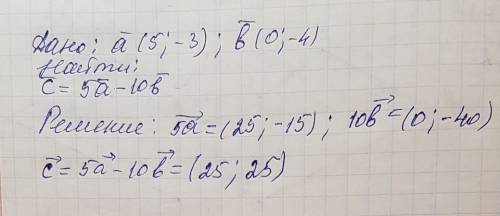 Дано: a̅ (5; -3) ; b̅ (0; -4)
Найти:
c̅ = 5a̅ - 10b̅
Решение: 5a⃗ = (25; -15) ; 10b⃗ = (0; -40)
c⃗ = 5a⃗ - 10b⃗ = (25; 25)